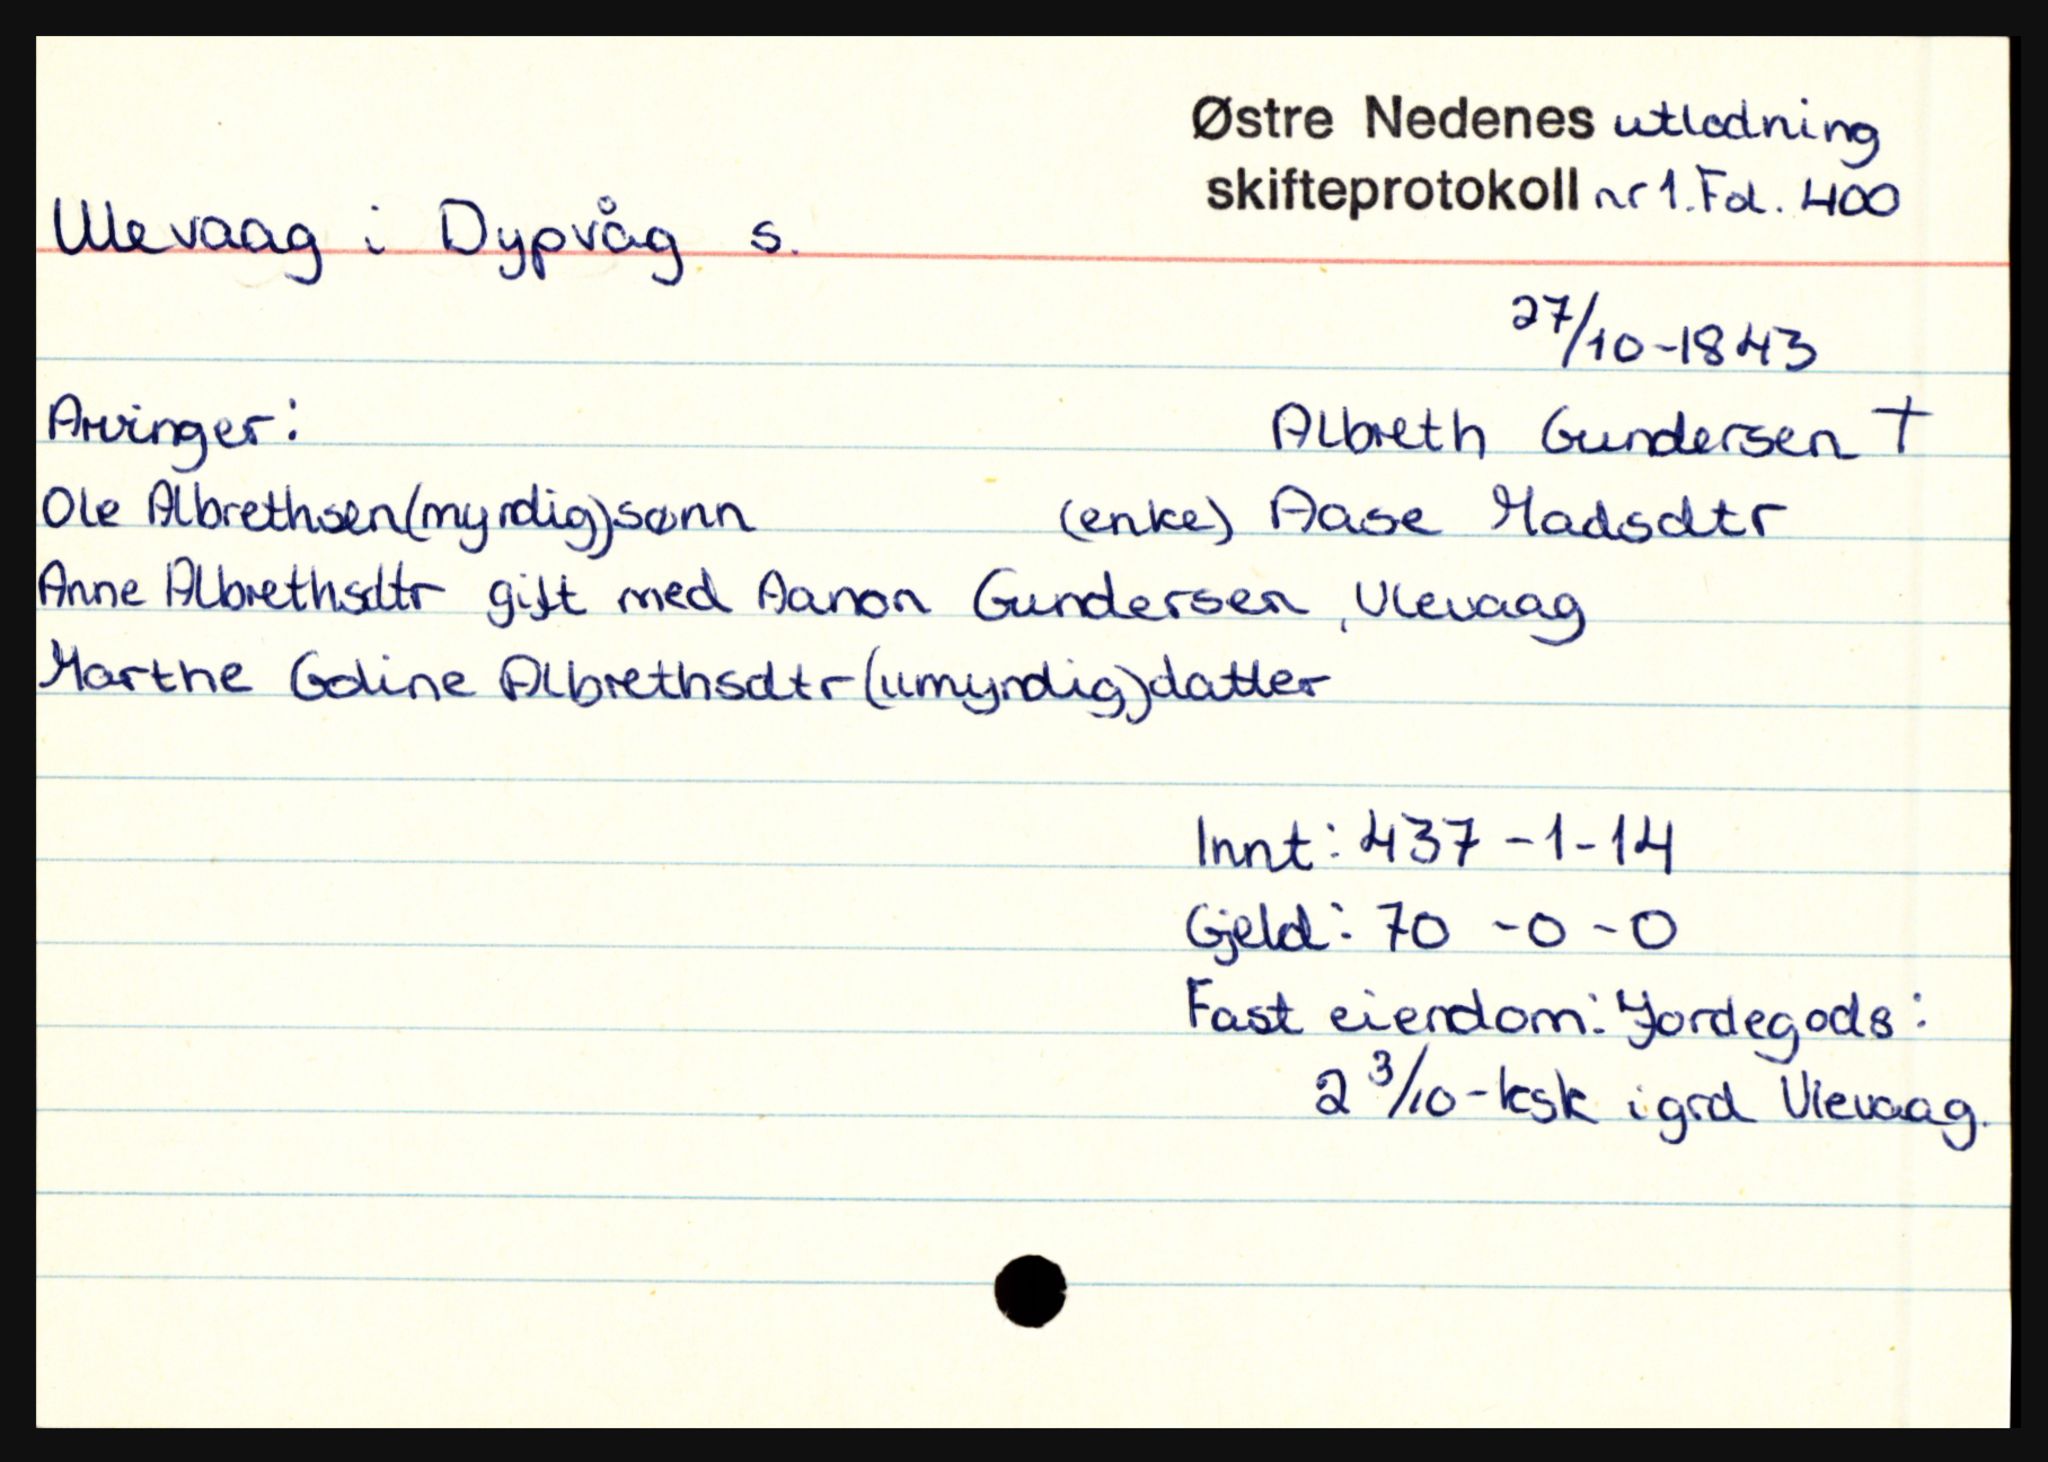 Østre Nedenes utlodning
skifteprotokoll nr 1. Fol. 400
Ulevaag i Dypvåg s.
27/10-1843
Arvinger: Albreth Gundersen †
Ole Albrethsen (myndig) sønn (enke) Aase Madsdtr
Anne Albrethsdtr gift med Aanon Gundersen, Ulevaag
Marthe Goline Albrethsdtr (umyndig) datter
Innt: 437 - 1 - 14
Gjeld: 70 - 0 - 0
Fast eiendom: Jordegods:
2 3/10 - ksk i grd Ulevaag.